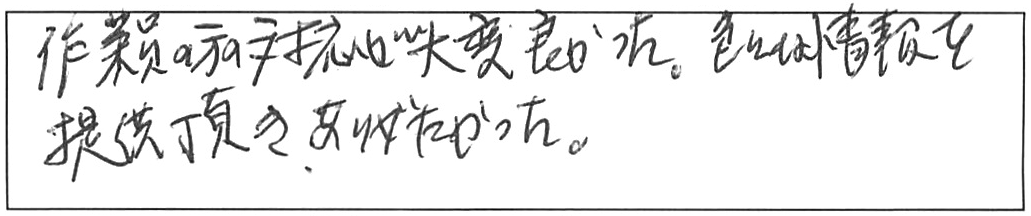 作業員の方の対応が大変良かった。色々な情報を
提供頂き、ありがたかった。